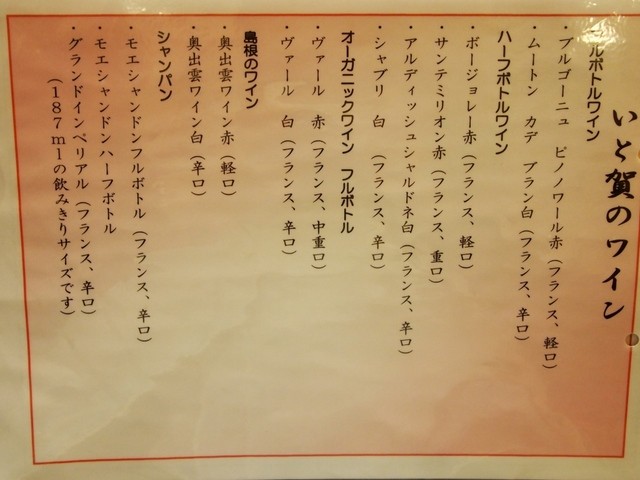 いと賀のワイン
フルボトルワイン
・ブルゴーニュ　ピノノワール赤（フランス、軽口）
・ムートン　カデ　ブラン白（フランス、辛口）
ハーフボトルワイン
・ボージョレー赤（フランス、軽口）
・サンテミリオン赤（フランス、重口）
・アルディッシュシャルドネ白（フランス、辛口）
・シャブリ　白　（フランス、辛口）
オーガニックワイン　フルボトル
・ヴァール　赤（フランス、中重口）
・ヴァール　白（フランス、辛口）
島根のワイン
・奥出雲ワイン赤（軽口）
・奥出雲ワイン白（辛口）
シャンパン
・モエシャンドンフルボトル（フランス、辛口）
・モエシャンドンハーフボトル
・グランドインペリアル（フランス、辛口）
（１８７ｍｌの飲みきりサイズです）